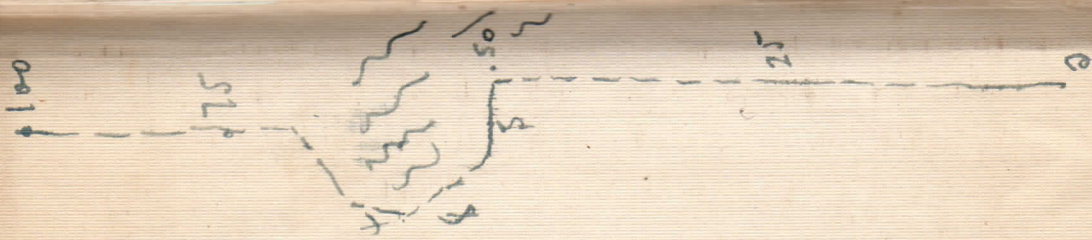 100
75
.50
25
0
5
8